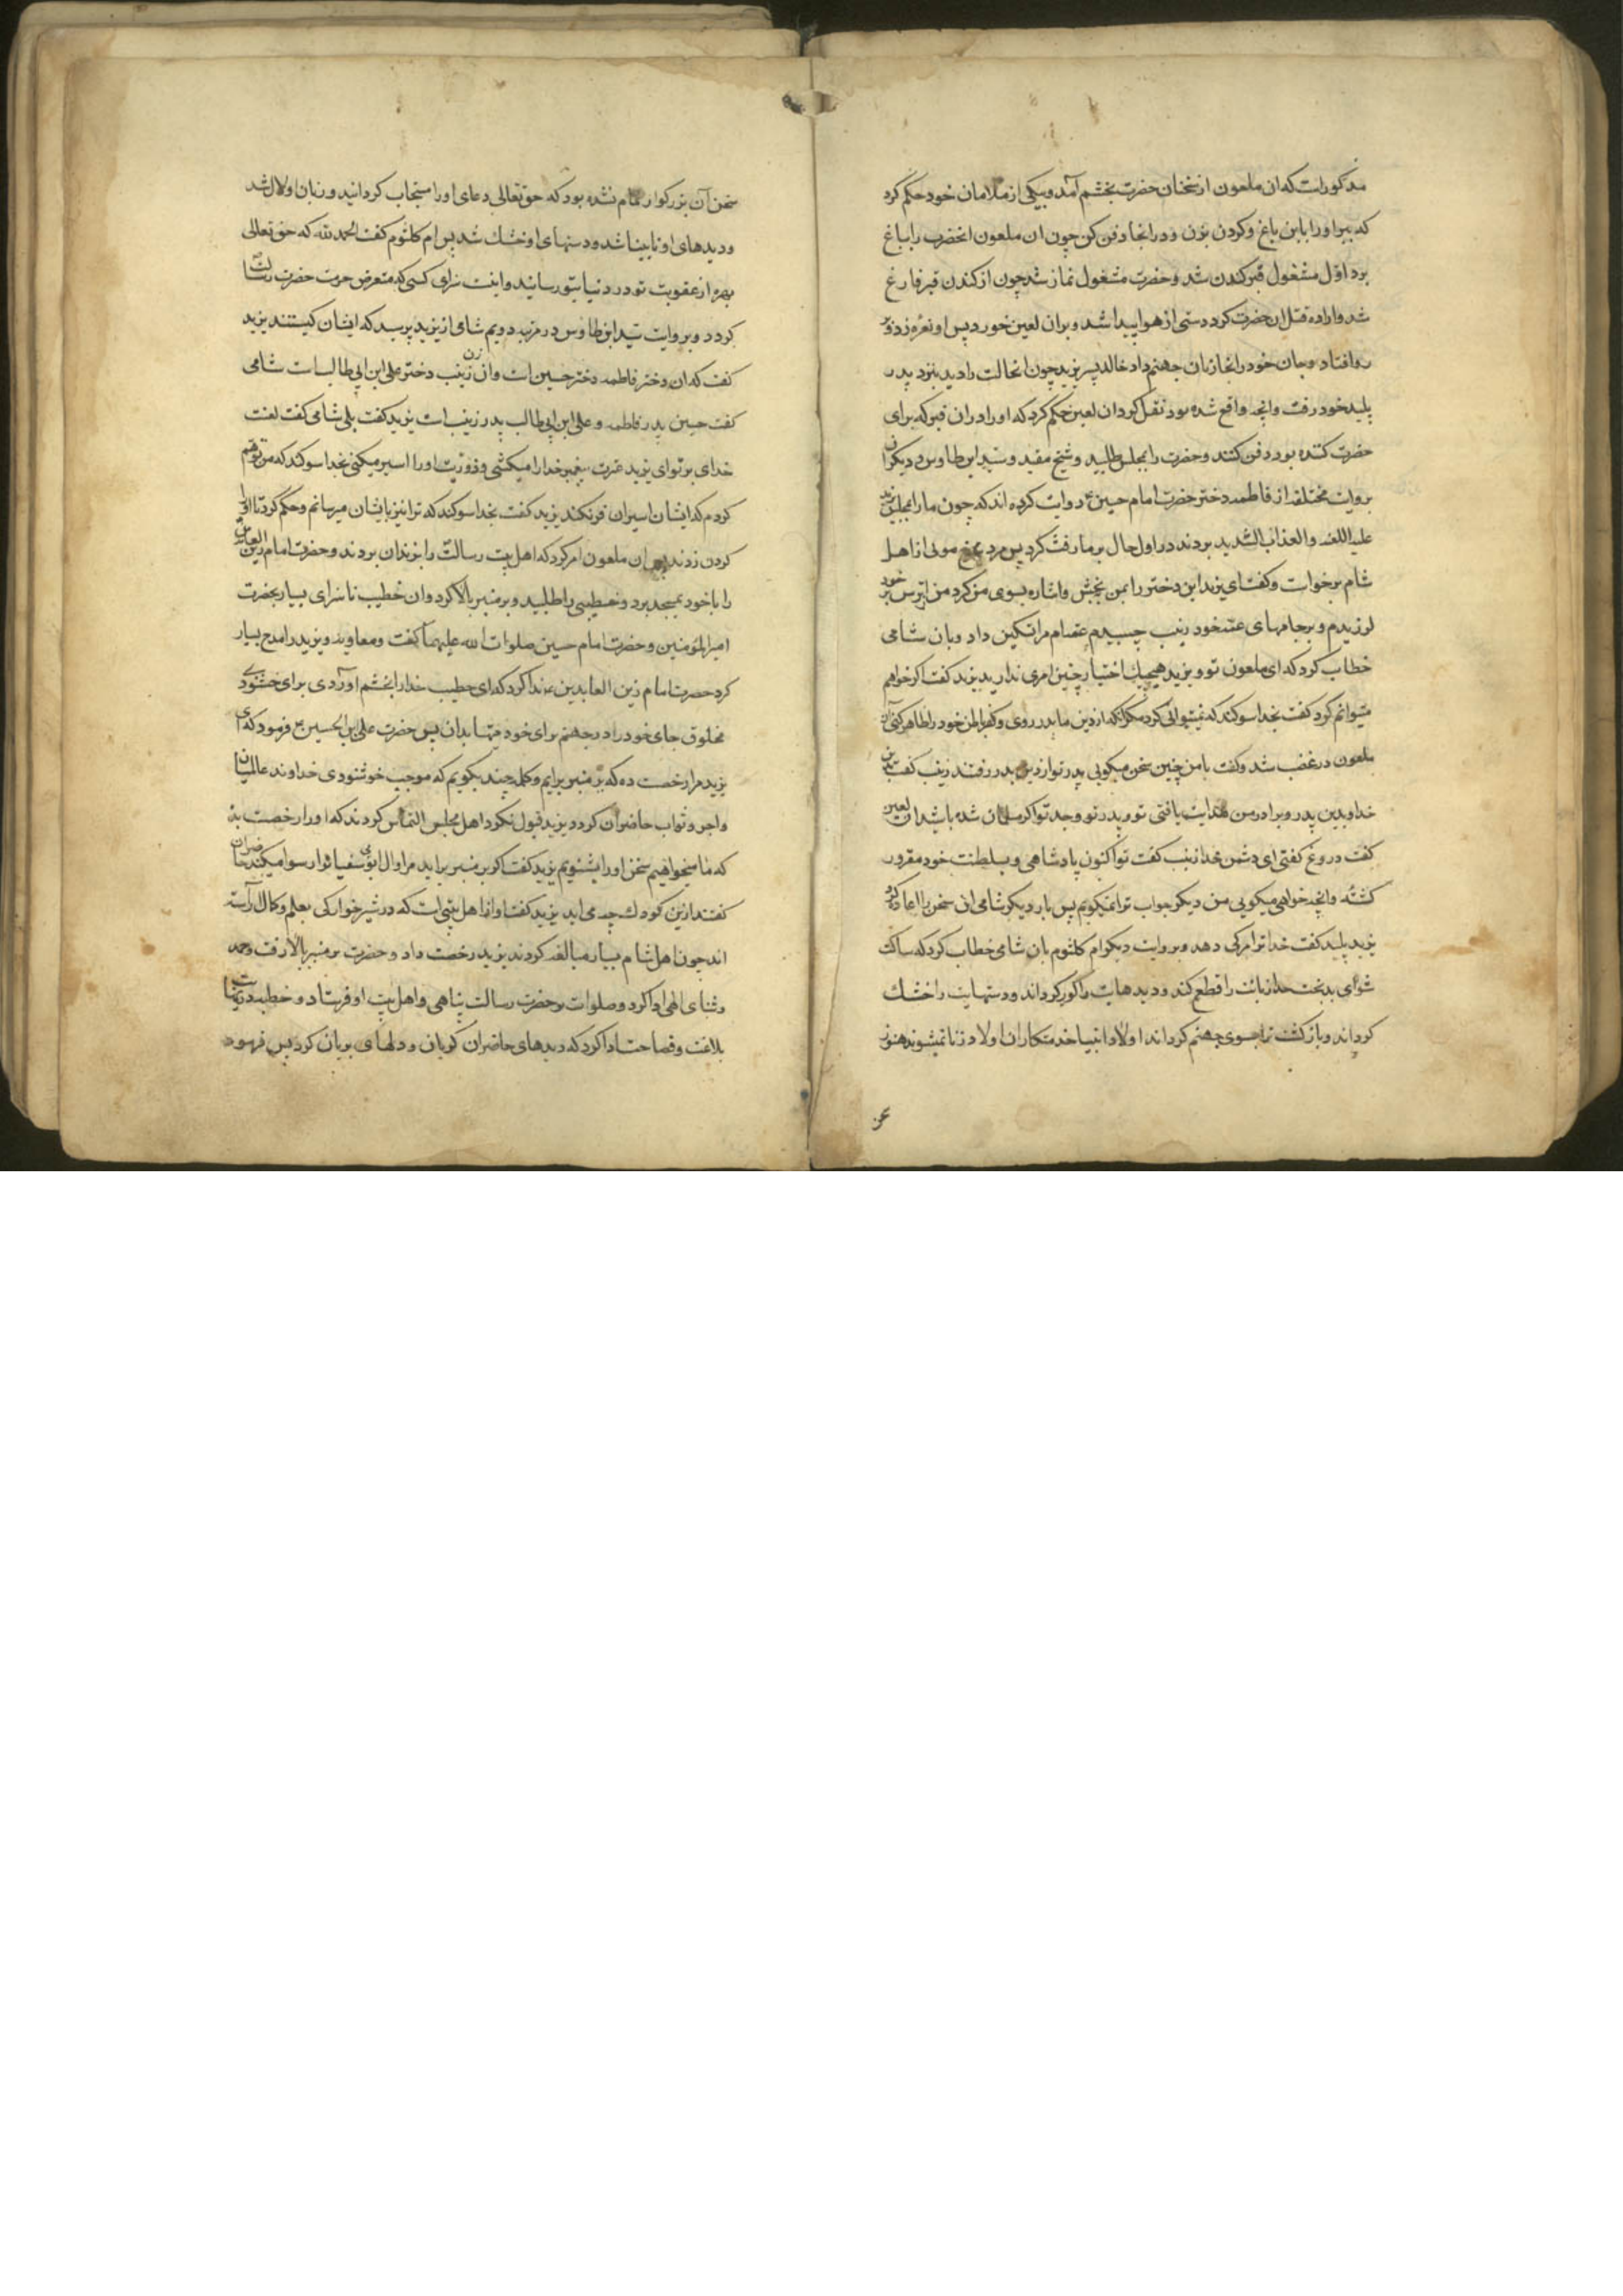 مذکورات که ان ملعون از سخنان حضرت بخشم آمد و بیکی از ملامان خود حکم کرد
که ببر اورا باین باغ و کردن بزن و در انجا دفن کن چون ان ملعون انحضرت را بباغ
برد اول مشغول قبر کندن شد و حضرت مشغول نماز شد چون از کندن قبر فارغ
شد و اراده قتل ان حضرت کرد دستی از هوا پیدا شد و بران لعین خورد پس او نعره زد و بر
رو افتاد و جان خود را نجازنان جهنم داد خالد پسر یزید چون انحالت را دید بنزد پدر
پلید خود رفت و انچه واقع شده بود نقل کرد ان لعین حکم کرد که او را در ان قبر که برای
حضرت کنده بود دفن کنند و حضرت را بمجلس طلبید و شیخ مفید و سید ابن طاوس و دیکران
بروایت مختلفه از فاطمه دختر حضرت امام حسین ع روایت کرده اند که چون ما را بمجلس یزید
علیه اللعنه و العذاب الشدید بردند در اول حال بر ما رقت کرد پس مرد سرخ موئی از اهل
شام برخوات و کفت ای یزید این دختر را بمن بخش و اشاره بسوی من کرد من از ترس بر خود
لرزیدم و برجامهای عمه خود زینب چسبیدم عمه ام مرا تسکین داد و بان شامی
خطاب کرد که ای ملعون تو و یزید هیچیک اختیار چنین امری ندارید یزید کفت اکر خواهم
میتوانم کرد کفت بخدا سوکند که نمیتوانی کرد مکر انکه از دین ما بدر روی و کفر باطن خود را ظاهر کنی ان
ملعون در غضب شد و کفت با من چنین سخن میکویی پدر تو از دین بدر رفتند زینب کفت بدین
خدا و بدین پدر و برادر من هدایت یافتی تو و پدر تو و جد تو اکر مسلمان شده باشید ان لعین
کفت دروغ کفتی ای دشمن خدا زینب کفت تو اکنون پادشاهی و بسلطنت خود مغرور
کشته و انچه خواهی میکویی من دیکر جواب ترا نمیکویم پس بار دیکر شامی ان سخن را اعاده کرد
یزید پلید کفت خدا ترا مرکی دهد و بروایت دیکر ام کلثوم بان شامی خطاب کرد که ساکت
شو ای بدبخت خدا زبانت را قطع کند و دیدهایت را کور کرداند و دستهایت را خشک
کرداند و باز کشت ترا بسوی جهنم کرداند اولاد انبیا خدمتکاران اولاد زنا نمیشوند هنوز
سخن آن بزرکوار تمام نشده بود که حق تعالی دعای اورا مستجاب کردانید و زبان او لال شد
و دیدهای او نابینا شد و دستهای او خشک شد پس ام کلثوم کفت الحمد لله که حق تعالی
بهره از عقوبت تو در دنیا بتو رسانید و اینت سزای کسی که متعرض حرمت حضرت رسالت
کردد و بروایت سید ابن طاوس در مرتبه دویم شامی از یزید پرسید که ایشان کیستند یزید
کفت که ان دختر فاطمه دختر حسین است و ان زن زینب دختر علی ابن ابی طالب است شامی
کفت حسین پدر فاطمه و علی ابن ابی طالب پدر زینب است یزید کفت بلی شامی کفت لعنت
خدای بر تو ای یزید عترت پیغمبر خدا را میکشی و ذریت او را اسیر میکنی بخدا سوکند که من توهم
کردم که ایشان اسیران فرنکند یزید کفت بخدا سوکند که ترا نیز بایشان میرسانم و حکم کرد تا او را
کردن زدند پس ان ملعون امر کرد که اهل بیت رسالت را بزندان بردند و حضرت امام زین العابدین
را با خود بمسجد برد و خطیبی را طلبید و بر منبر بالا کرد و ان خطیب ناسزای بسیار بحضرت
امیرالمؤمنین و حضرت امام حسین صلوات الله علیهما کفت و معاویه و یزید را مدح بسیار
کرد حضرت امام زین العابدین ع ندا کرد که ای خطیب خدا را بخشم اوردی برای خشنودی
مخلوق جای خود را در جهنم برای خود مهیا بدان پس حضرت علی بن الحسین ع فرمود که ای
یزید مرا رخصت ده که بر منبر برایم و کلمه چند بکویم که موجب خوشنودی خداوند عالمیان
و اجر و ثواب حاضران کردد یزید قبول نکرد اهل مجلس التماس کردند که او را رخصت بده
که ما میخواهیم سخن اورا بشنویم یزید کفت اکر بر منبر براید مرا و ال ابوسفیان را رسوا میکند حاضران
کفتند ازین کودک چه می اید یزید کفت او از اهل بیتی است که در شیرخوارکی بعلم و کمال آراسته
اند چون اهل شام بسیار مبالغه کردند یزید رخصت داد و حضرت بر منبر بالا رفت و حمد
و ثنای الهی ادا کرد و صلوات بر حضرت رسالت پناهی و اهل بیت او فرستاد و خطبه در نهایت
بلاغت و فصاحت ادا کرد که دیدهای حاضران کریان و دلهای بریان کرد پس فرمود